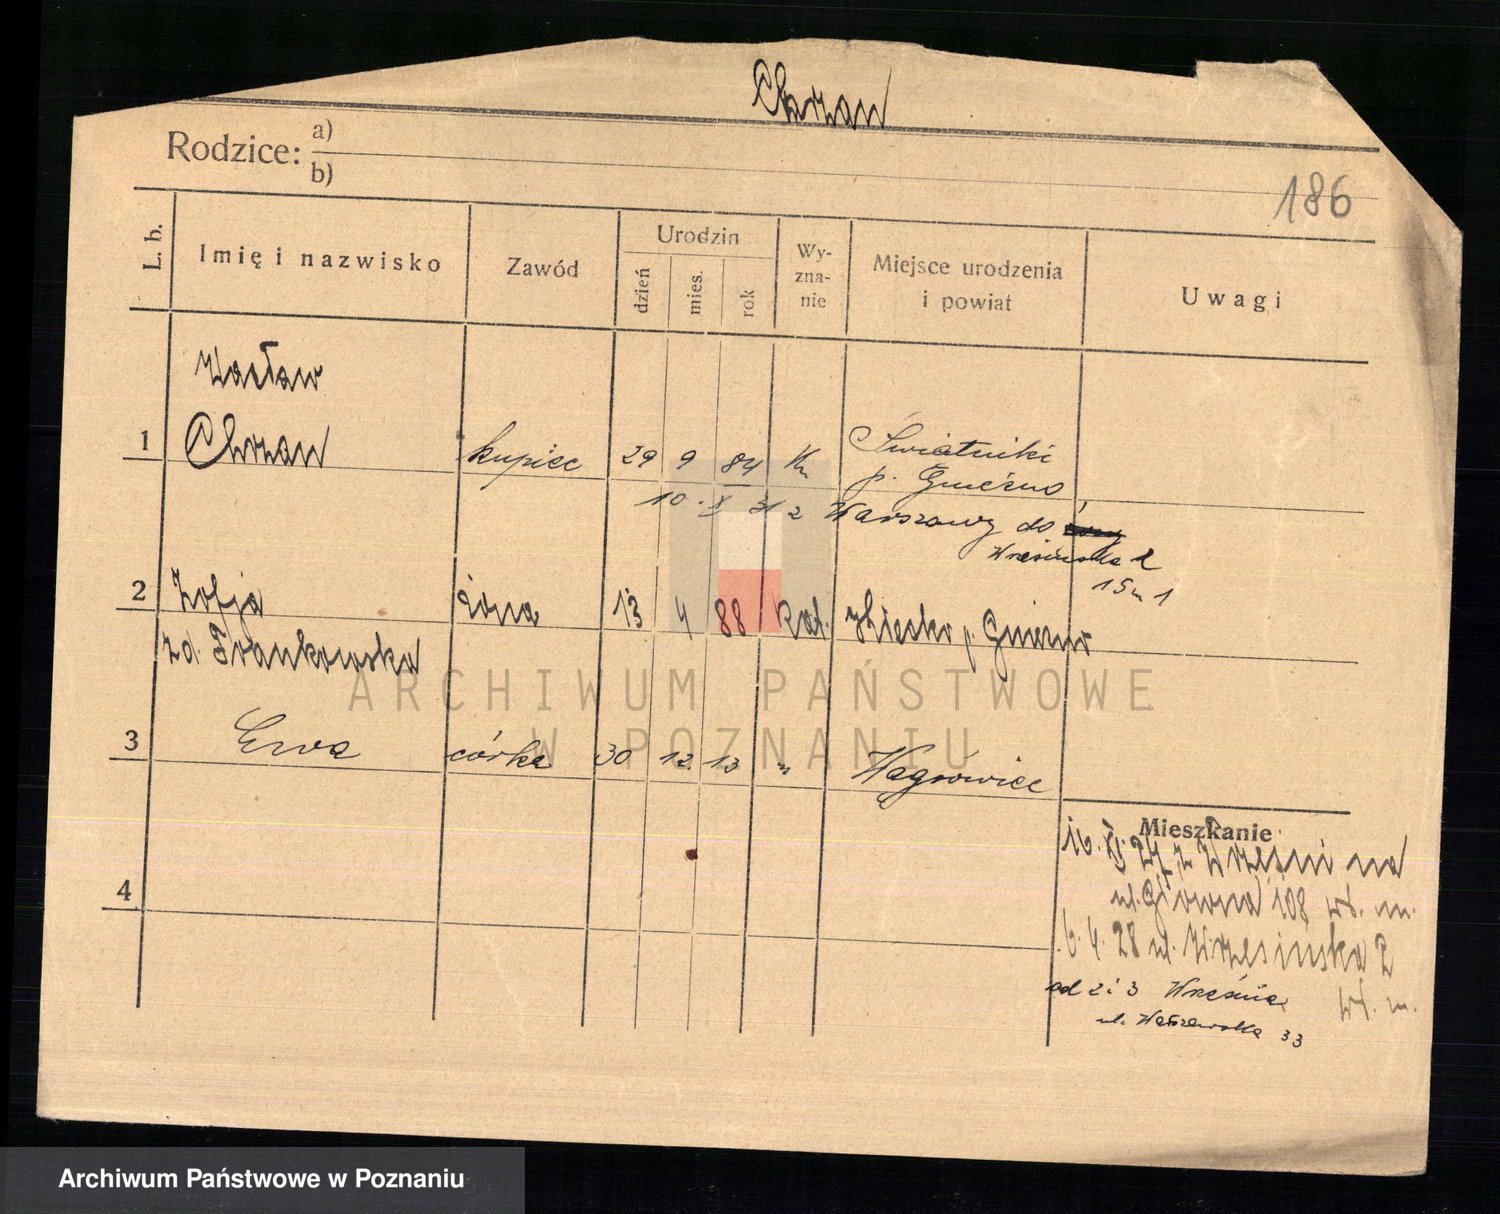 Chrzan
Rodzice: a)
b)
186
L. b.
Imię i nazwisko
Zawód
Urodzin
dzień
mies.
rok
Wy-
zna-
nie
Miejsce urodzenia
i powiat
Uwagi
Wacław
1 Chrzan kupiec 29 9 84 Świątniki
p. Gniezno
10. X 31 z Warszawy do
Wrzesińska 2
15 m 1
2 Zofja żona 13 4 88 kat. Kłecko p. Gniezno
zd. Frankowska
ARCHIWUM PAŃSTWOWE
W POZNANIU
3 Ewa córka 30 12. 13 " Wągrówiec
Mieszkanie
16. XI. 27 z Wrześni na
ul. Główna 108 wł. m.
4
6. 4. 28 ul. Wrzesińska 2
wł. m.
od 2 i 3 Września
ul. Warszawska 33
Archiwum Państwowe w Poznaniu